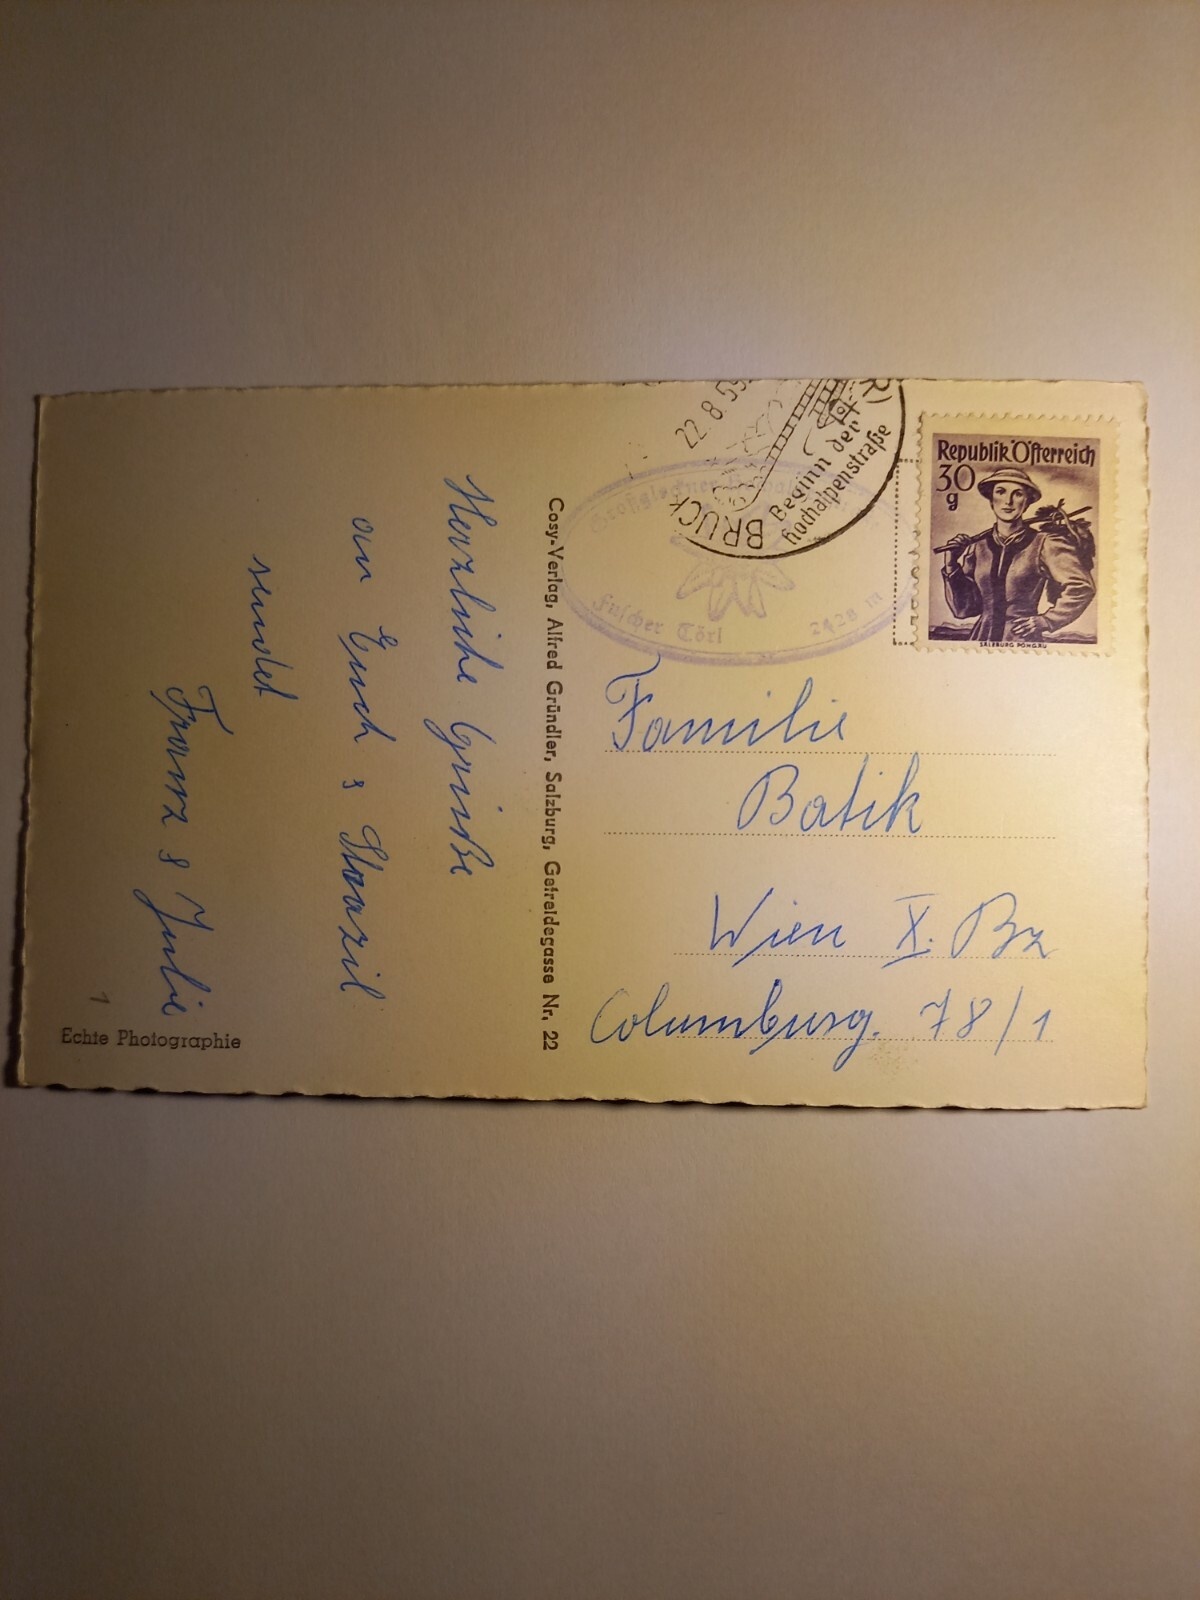 Herzliche Grüße
an Euch &
sendet
Franz & Julie
Echte Photographie
1
Cosy-Verlag, Alfred Gründler, Salzburg, Getreidegasse Nr. 22
22.8.59
BRUCK
Beginn der
Hochalpenstraße
Fuscher Törl 2428 m
Republik Österreich
30
g
SALZBURG PONGAU
Familie
Batik
Wien X. Bz
Columbusg. 78/1